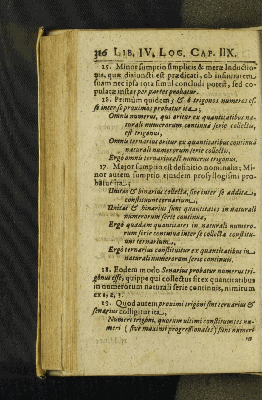 316 LIB. IV. LOG. CAP. IIX.
15. Minor sumptio simplicis & meræ Inductio-
nis, quæ disiuncti est prædicati, ob infinitatem
suam nec ipsa tota simul concludi potest, sed co-
pulatæ instar per partes probatur.
16. Primum quidem; & 6 trigonos numeros es-
se inter se proximos probatur ita;
Omnis numerus, qui oritur ex quantitatibus na-
turali numerorum continuâ serie collectis,
est trigonus,
Omnis ternarius oritur ex quantitatibus continuâ
naturali numerorum serie collectis.
Ergo omnis ternarius est numerus trigonus.
17. Major sumptio est definitio nominalis; Mi-
nor autem sumptio ejusdem prosyllogismi pro-
batur ita;
Unitas & binarius collecta, sive inter se addita,
constituunt ternarium,
Unitas & binarius sunt quantitates in naturali
numerorum serie continuâ,
Ergo quædam quantitates in naturali numero-
rum serie continuâ inter se collectæ constitu-
unt ternarium,
Ergo ternarius constituitur ex quantitatibus in
naturali numerorum serie continuis.
18. Eodem modo Senarius probatur numerus tri-
gonus esse, quippe qui collectus sit ex quantitatibus
in numerorum naturali serie continuis, nimirum
ex 1, 2, 3.
19. Quod autem proximi trigoni sint ternarius &
senarius colligitur ita,
Numeri trigoni, quorum ultimi constituentes nu-
meri (sive maximi progressionales) sunt numeri
in